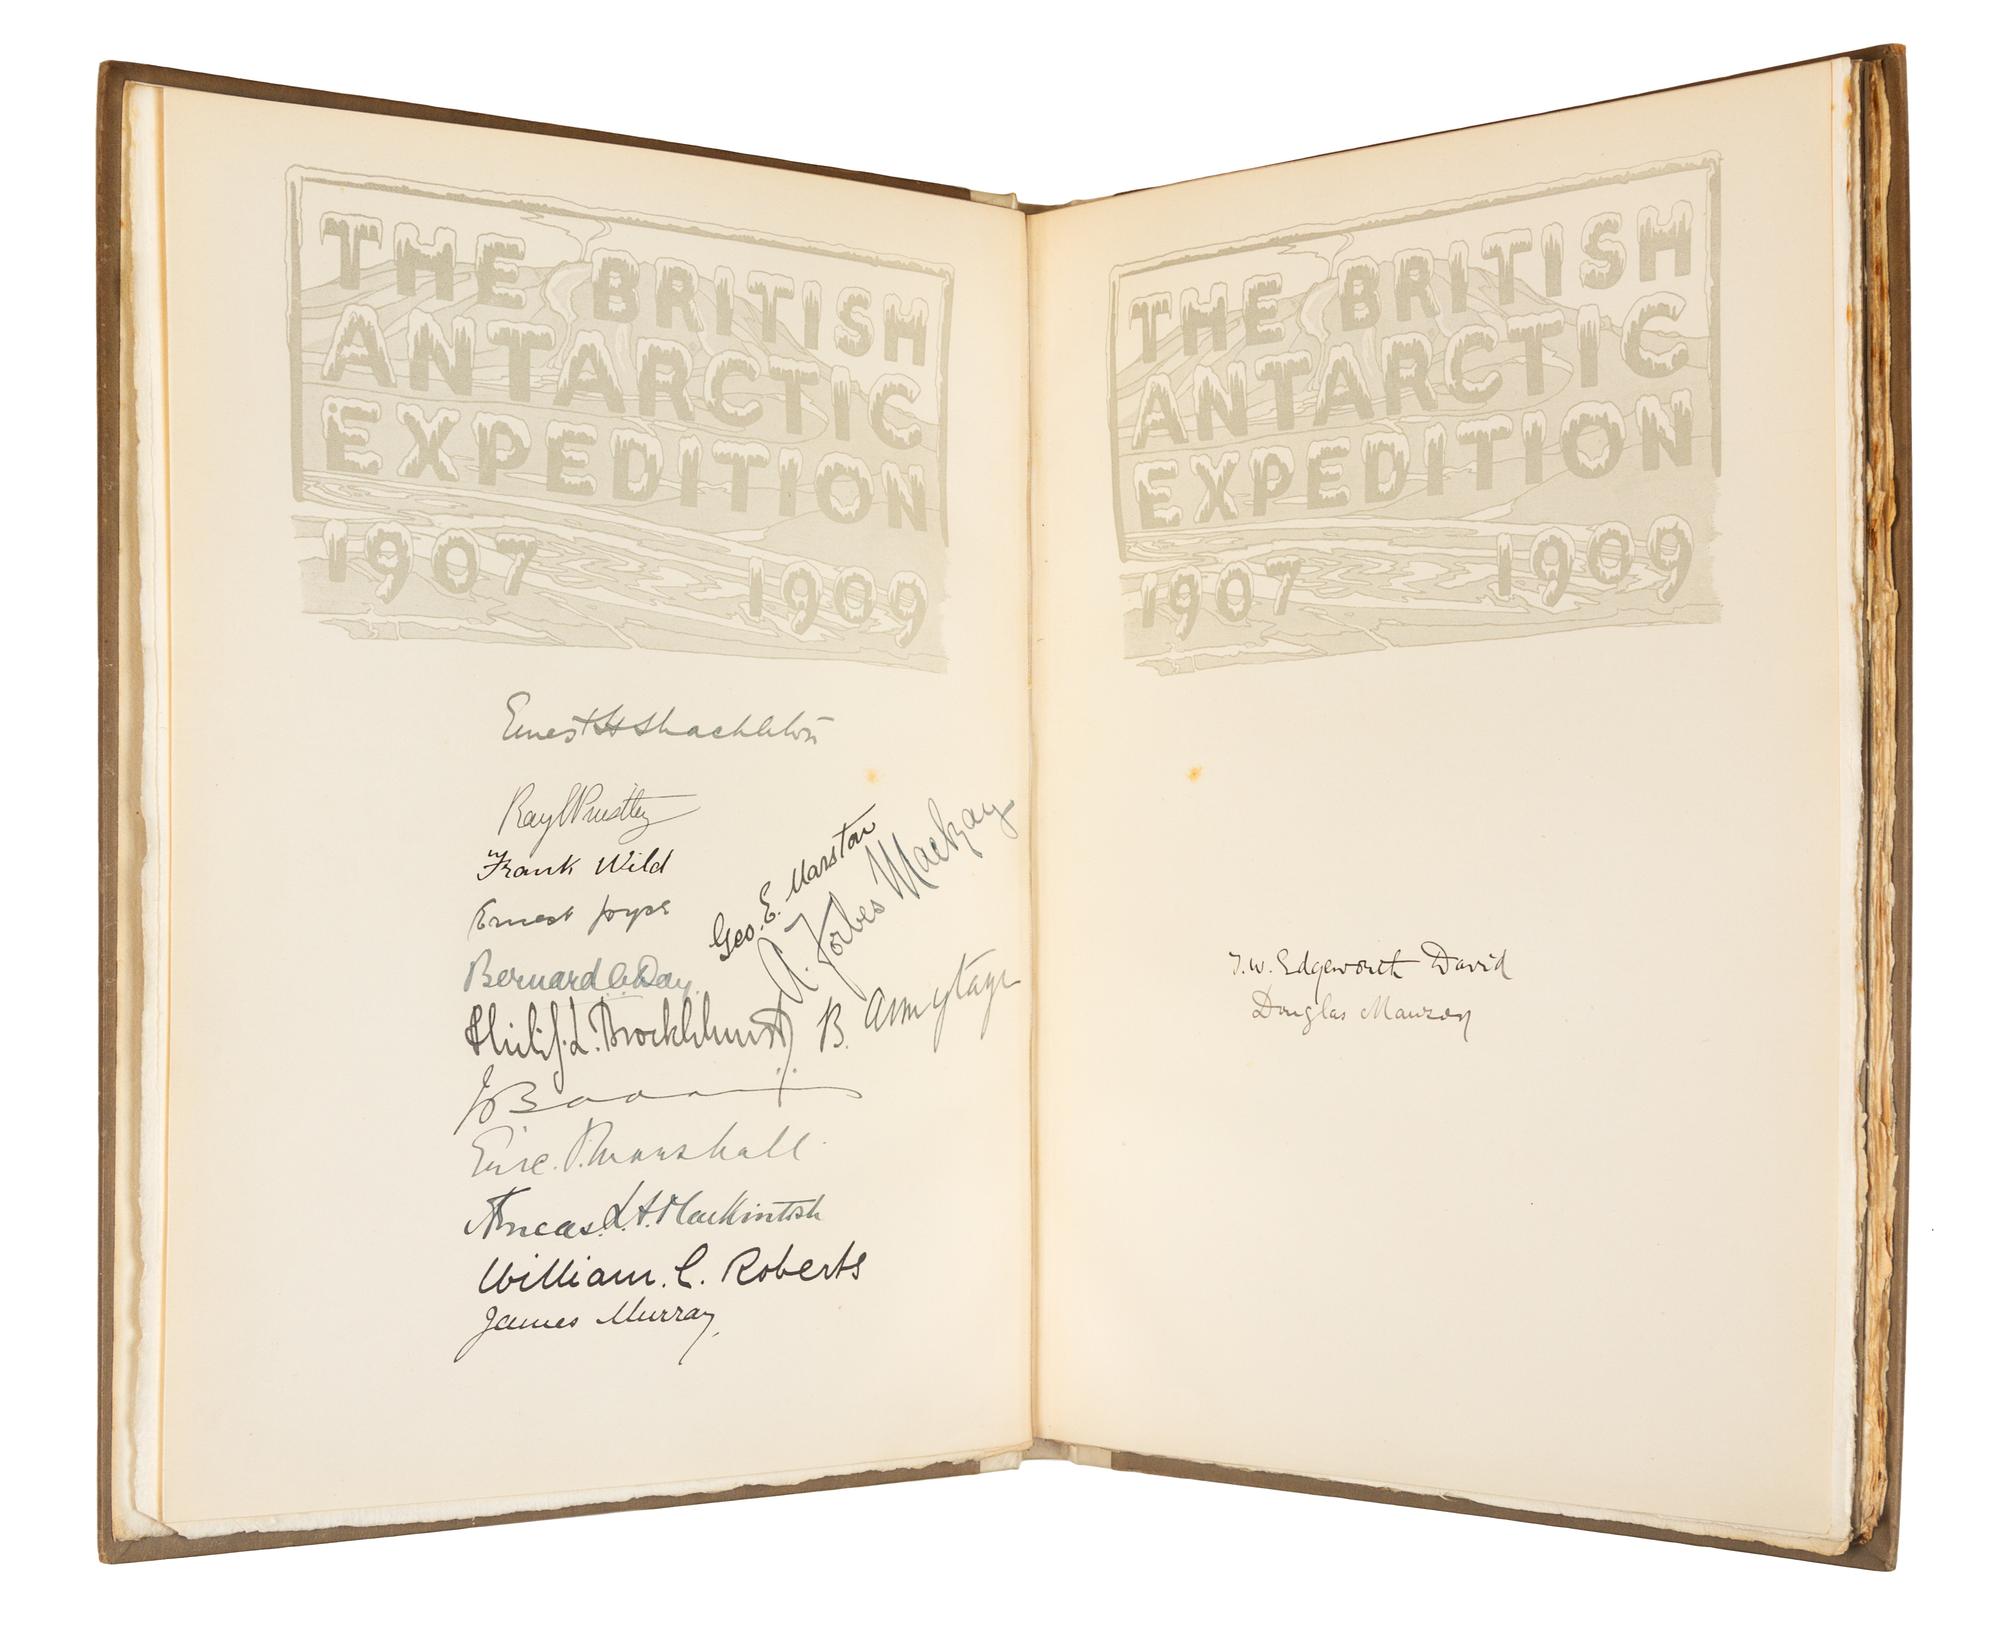 THE BRITISH
ANTARCTIC
EXPEDITION
1907 1909
Ernest H Shackleton
Ray E Priestley
Frank Wild
Ernest Joyce
Geo. E. Marston
A. Forbes Mackay
Bernard C. Day.
Philip. L. Brocklehurst
B. Armytage
Eric. P. Marshall.
Aeneas. L. A. Mackintosh
William. C. Roberts
James Murray,
THE BRITISH
ANTARCTIC
EXPEDITION
1907 1909
T. W. Edgeworth David
Douglas Mawson